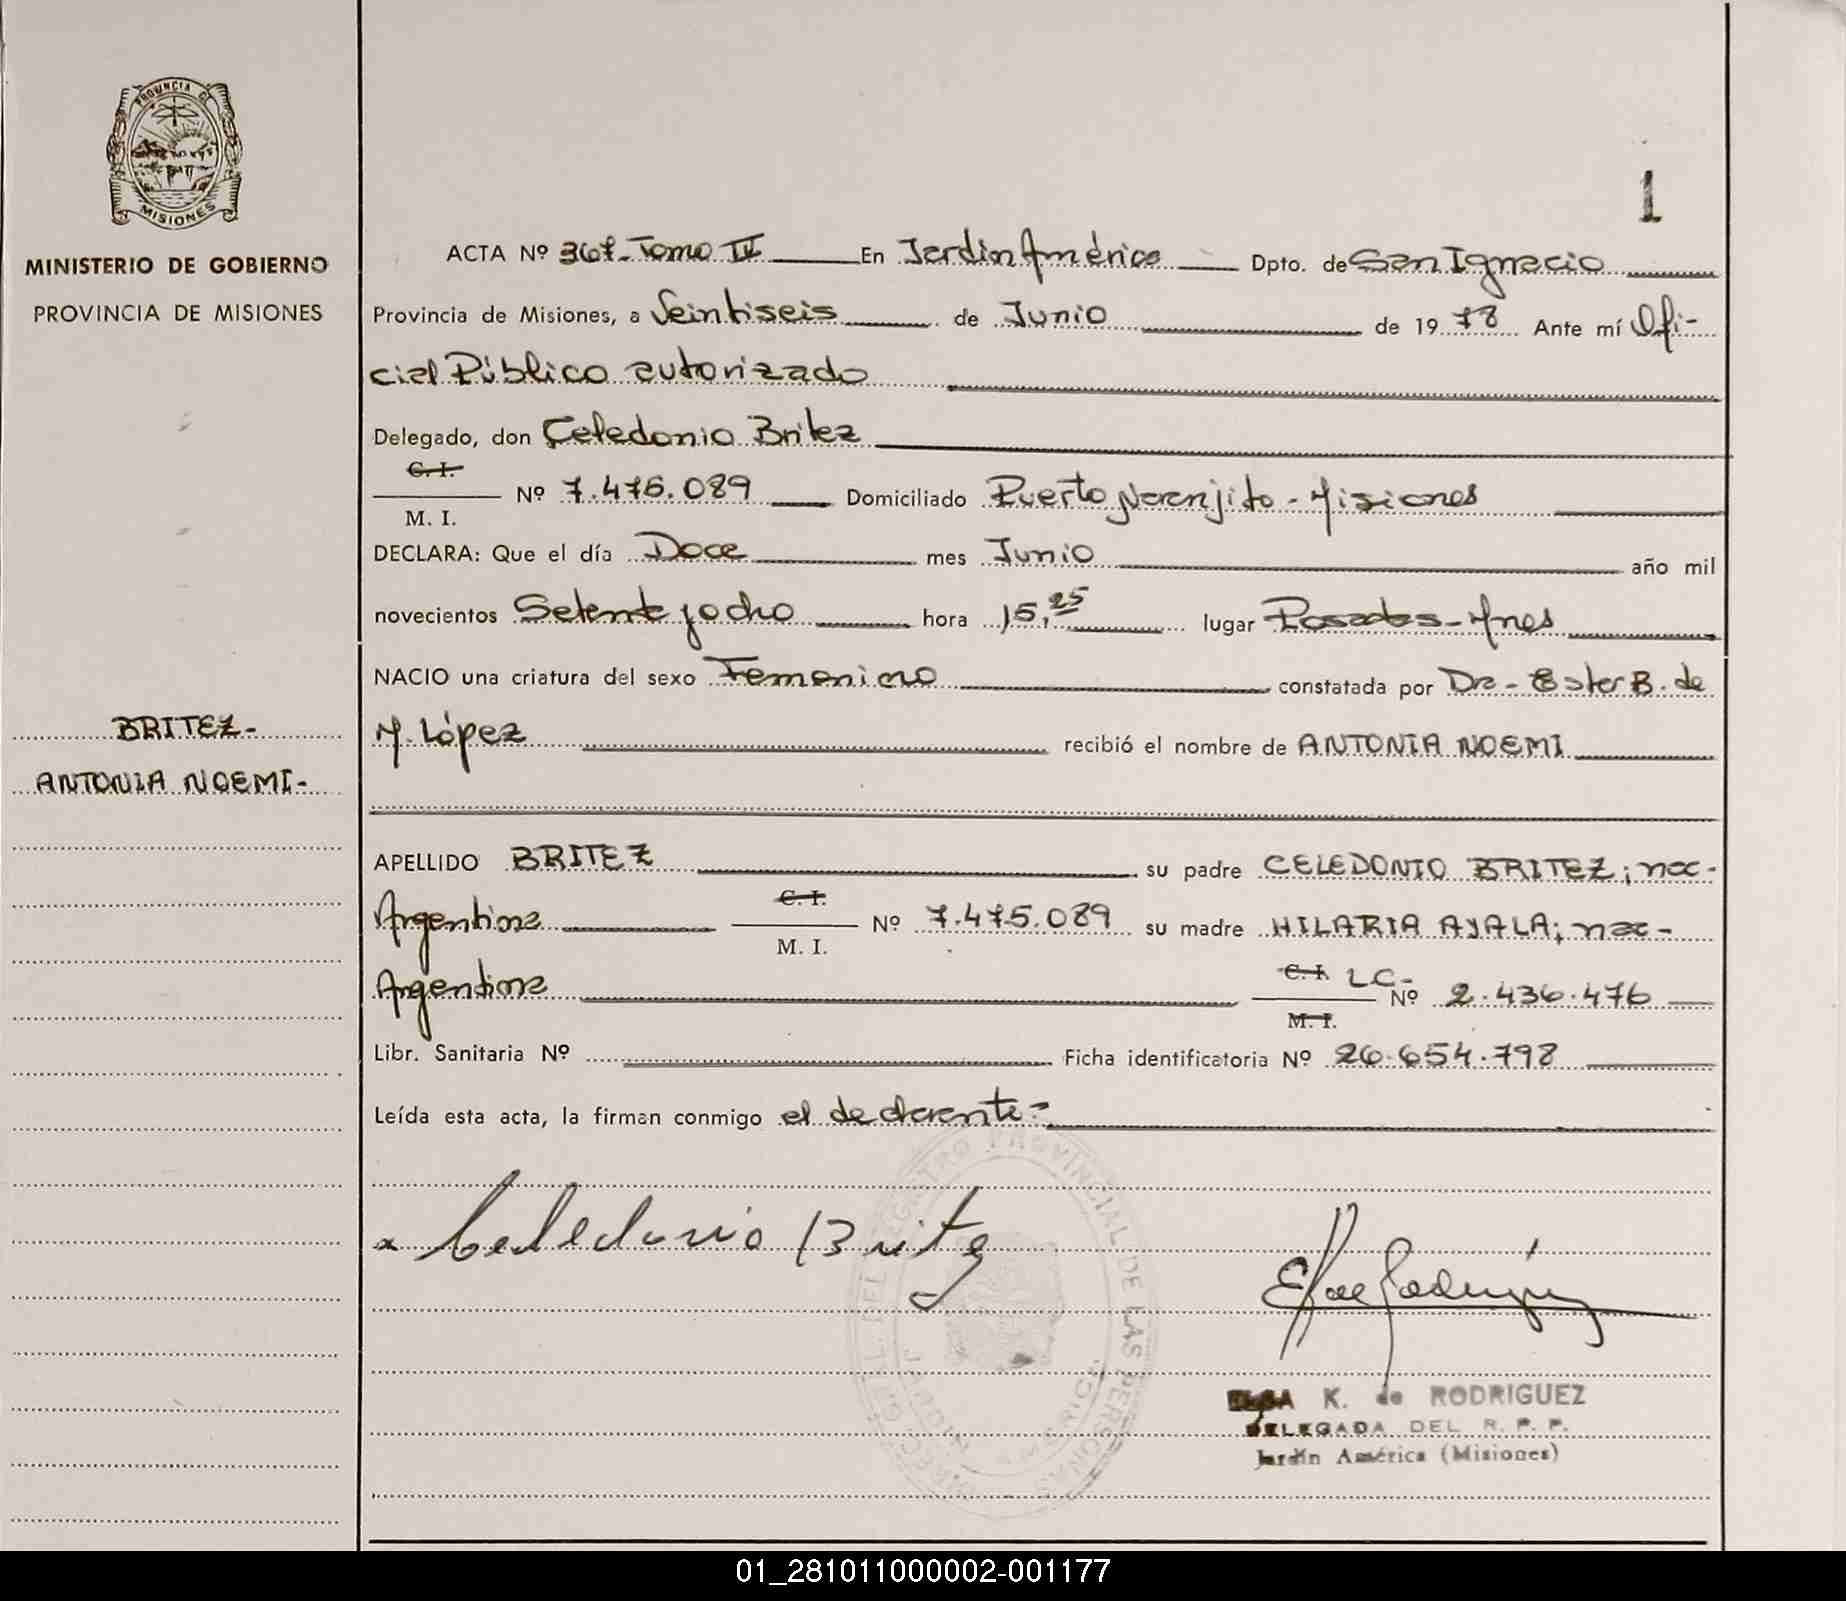 PROVINCIA DE
MISIONES
MINISTERIO DE GOBIERNO
PROVINCIA DE MISIONES
BRITEZ-
ANTONIA NOEMI-
1
ACTA Nº 367- Tomo IV En Jardín América Dpto. de San Ignacio
Provincia de Misiones, a Veintiseis de Junio de 1978 Ante mí Ofi-
cial Público autorizado
Delegado, don Celedonio Britez
C. I.
Nº 7.475.089 Domiciliado Puerto Naranjito - Misiones
M. I.
DECLARA: Que el día Doce mes Junio año mil
novecientos Setenta y ocho hora 15,25 lugar Posadas-Mnes
NACIO una criatura del sexo Femenino constatada por Dra- Ester B. de
M. López recibió el nombre de ANTONIA NOEMI
APELLIDO BRITEZ su padre CELEDONIO BRITEZ; nac-
C. I.
Argentina Nº 7.475.089 su madre HILARIA AYALA; nac-
M. I.
C. I. LC-
Argentina Nº 2.436.476
M. I.
Libr. Sanitaria Nº Ficha identificatoria Nº 26.654.798
Leída esta acta, la firman conmigo el declarante-
Celedonio Britez
ELSA K. de RODRIGUEZ
DELEGADA DEL R. P. P.
Jardín América (Misiones)
DIRECCION GRAL. DEL REGISTRO PROVINCIAL DE LAS PERSONAS
JARDIN AMERICA
01_281011000002-001177